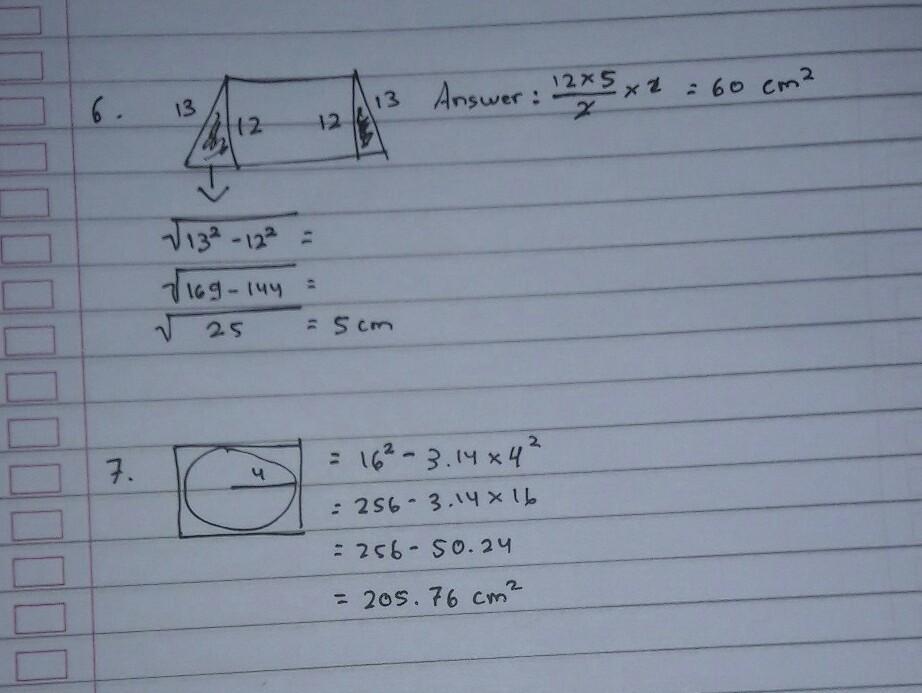 6. 13 12 12 13 Answer: 12×5/2 ×2 = 60 cm²
√13² - 12² =
√169 - 144 =
√25 = 5 cm
7. 4 = 16² - 3.14 × 4²
= 256 - 3.14 × 16
= 256 - 50.24
= 205.76 cm²